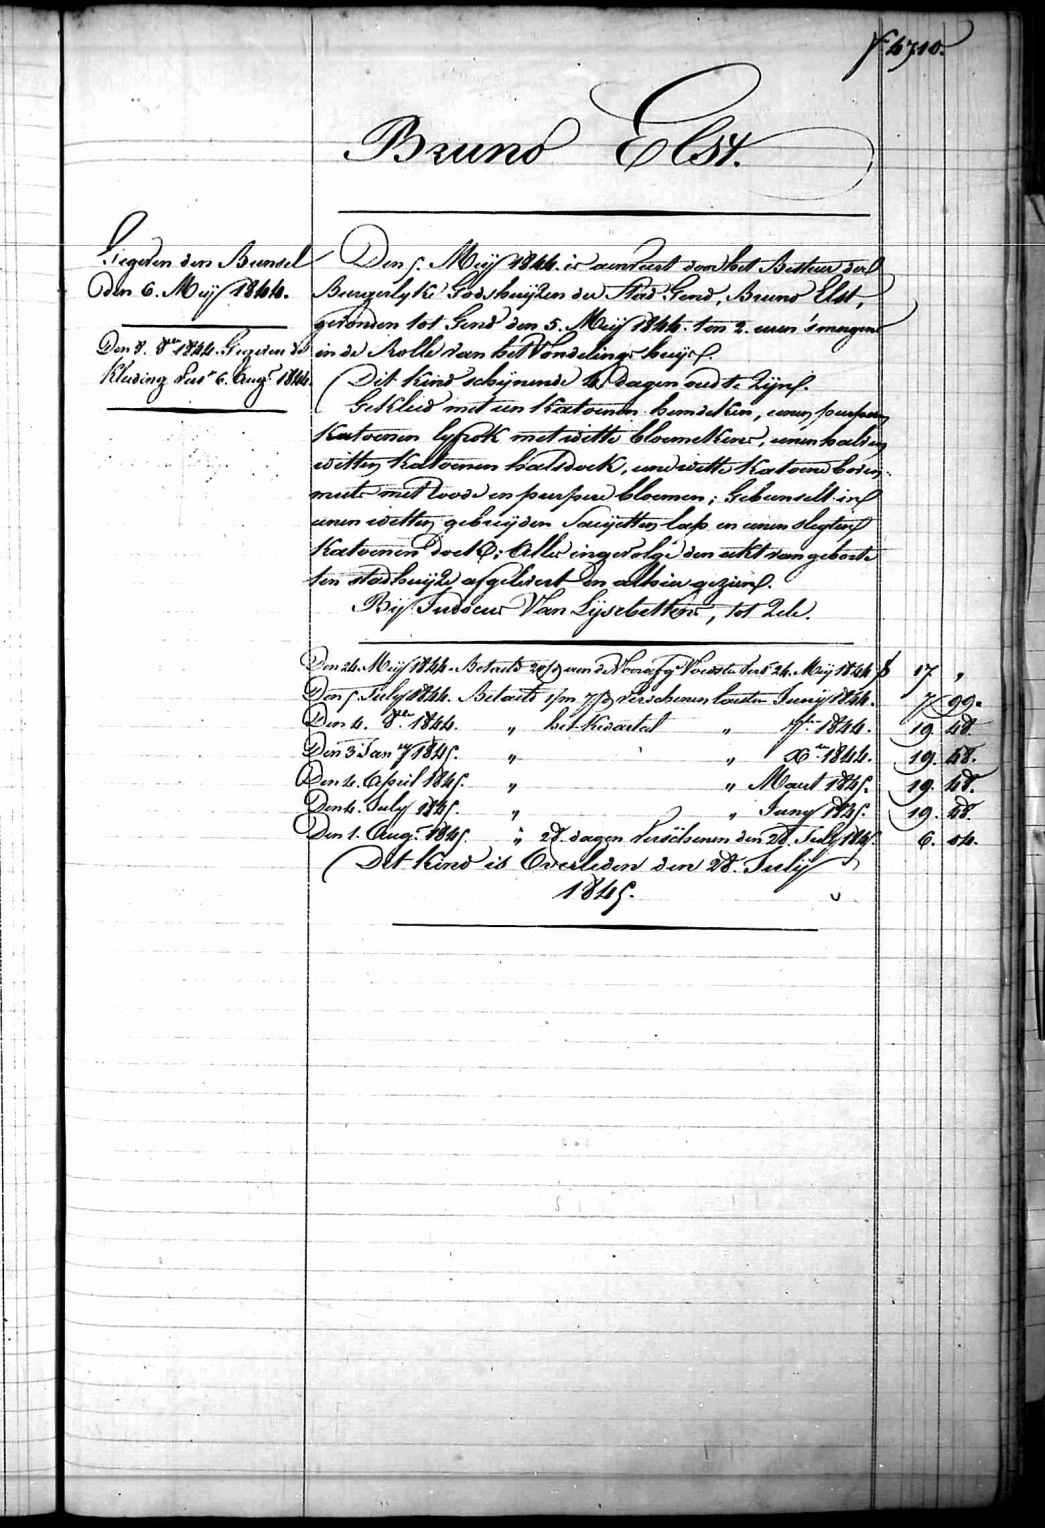 4710.
Bruno Elst.
Gegeven den Bunsel
den 6. Meij 1844.
Den 8. 8er 1844. Gegeven de
Kleeding sed. 6. Augt 1844.
Den 5. Meij 1844. is aenveert door het Bestuer der
Burgerlyke Godshuijzen der Stad Gend, Bruno Elst,
gevonden tot Gend den 5. Meij 1844. ten 2. uren 's morgens
in de Rolle van het Vondelings huijs.
Dit Kind schijnende 4 dagen oud te zijn.
Gekleed met een Katoenen hemdeken, eenen purpere
Katoenen lyfrok met witte bloemekens, eenen halven
witten Katoenen halsdoek, eene witte Katoene boven-
muts met roode en purpere bloemen; Gebunselt in
eenen witten gebreijden Saeijetten lap en eenen slegten
Katoenen doek; Alles ingevolge den akt van geboorte
ten stadhuijze afgelevert en alhier gezien.
Bij Judocus Van Lijsebettens, tot Zele.
Den 24. Meij 1844. Betaeld aen de Voedster sed. 24. Meij 1844 f 17 "
Den 5. July 1844. Betaeld 1/m 7/d verschenen lasten Junij 1844. 7 99.
Den 4. 8er 1844. " het Kwartael " 7er 1844. 19. 48.
Den 3 Jany 1845. " " Xer 1844. 19. 48.
Den 4. April 1845. " " Maert 1845. 19. 48.
Den 4. July 1845. " " Juny 1845. 19. 48
Den 1. Augt 1845. " 28. dagen verschenen den 28. July 1845. 6. 04.
Dit Kind is Overleden den 28. Julij
1845.